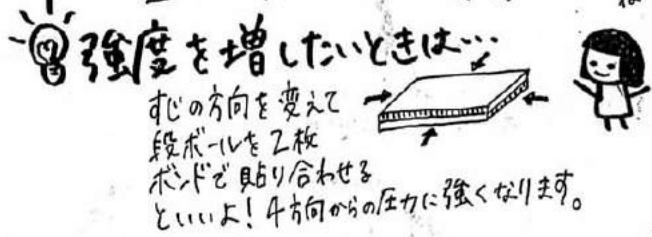 強度を増したいときは…
すじの方向を変えて
段ボールを2枚
ボンドで貼り合わせる
といいよ！4方向からの圧力に強くなります。